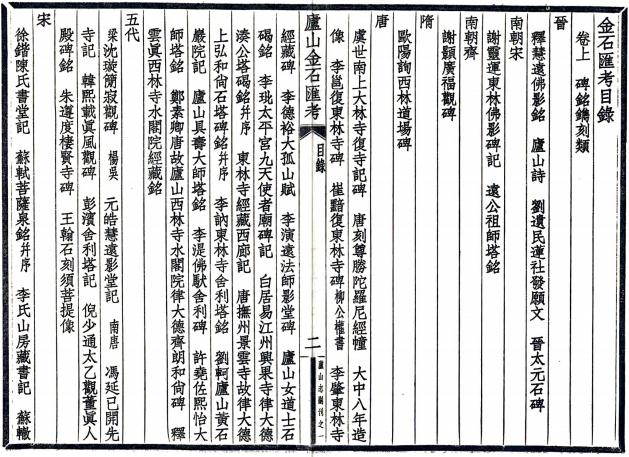 金石匯考目錄
卷上 碑銘鐫刻類
晉
釋慧遠佛影銘 廬山詩 劉遺民蓮社發願文 晉太元石碑
南朝宋
謝靈運東林佛影碑記 遠公祖師塔銘
南朝齊
謝顥廣福觀碑
隋
歐陽詢西林道場碑
唐
虞世南上大林寺復寺記碑 唐刻尊勝陀羅尼經幢 大中八年造
像 李邕復東林寺碑 崔黯復東林寺碑柳公權書 李肇東林寺
廬山金石匯考 目錄 二 廬山志副刊之一
經藏碑 李德裕大孤山賦 李演遠法師影堂碑 廬山女道士石
碣銘 李玭太平宮九天使者廟碑記 白居易江州興果寺律大德
湊公塔碣銘幷序 東林寺經藏西廊記 唐撫州景雲寺故律大德
上弘和尙石塔碑銘幷序 李訥東林寺舍利塔銘 劉軻廬山黃石
巖院記 廬山具壽大師塔銘 李湜佛馱舍利碑 許堯佐熙怡大
師塔銘 鄭素卿唐故廬山西林寺水閣院律大德齊朗和尙碑 釋
雲眞西林寺水閣院經藏銘
五代
梁沈璇簡寂觀碑 楊吳 元皓慧遠影堂記 南唐 馮延已開先
寺記 韓熙載眞風觀碑 彭濱舍利塔記 倪少通太乙觀董眞人
殿碑銘 朱遵度棲賢寺碑 王翰石刻須菩提像
宋
徐鍇陳氏書堂記 蘇軾菩薩泉銘幷序 李氏山房藏書記 蘇轍